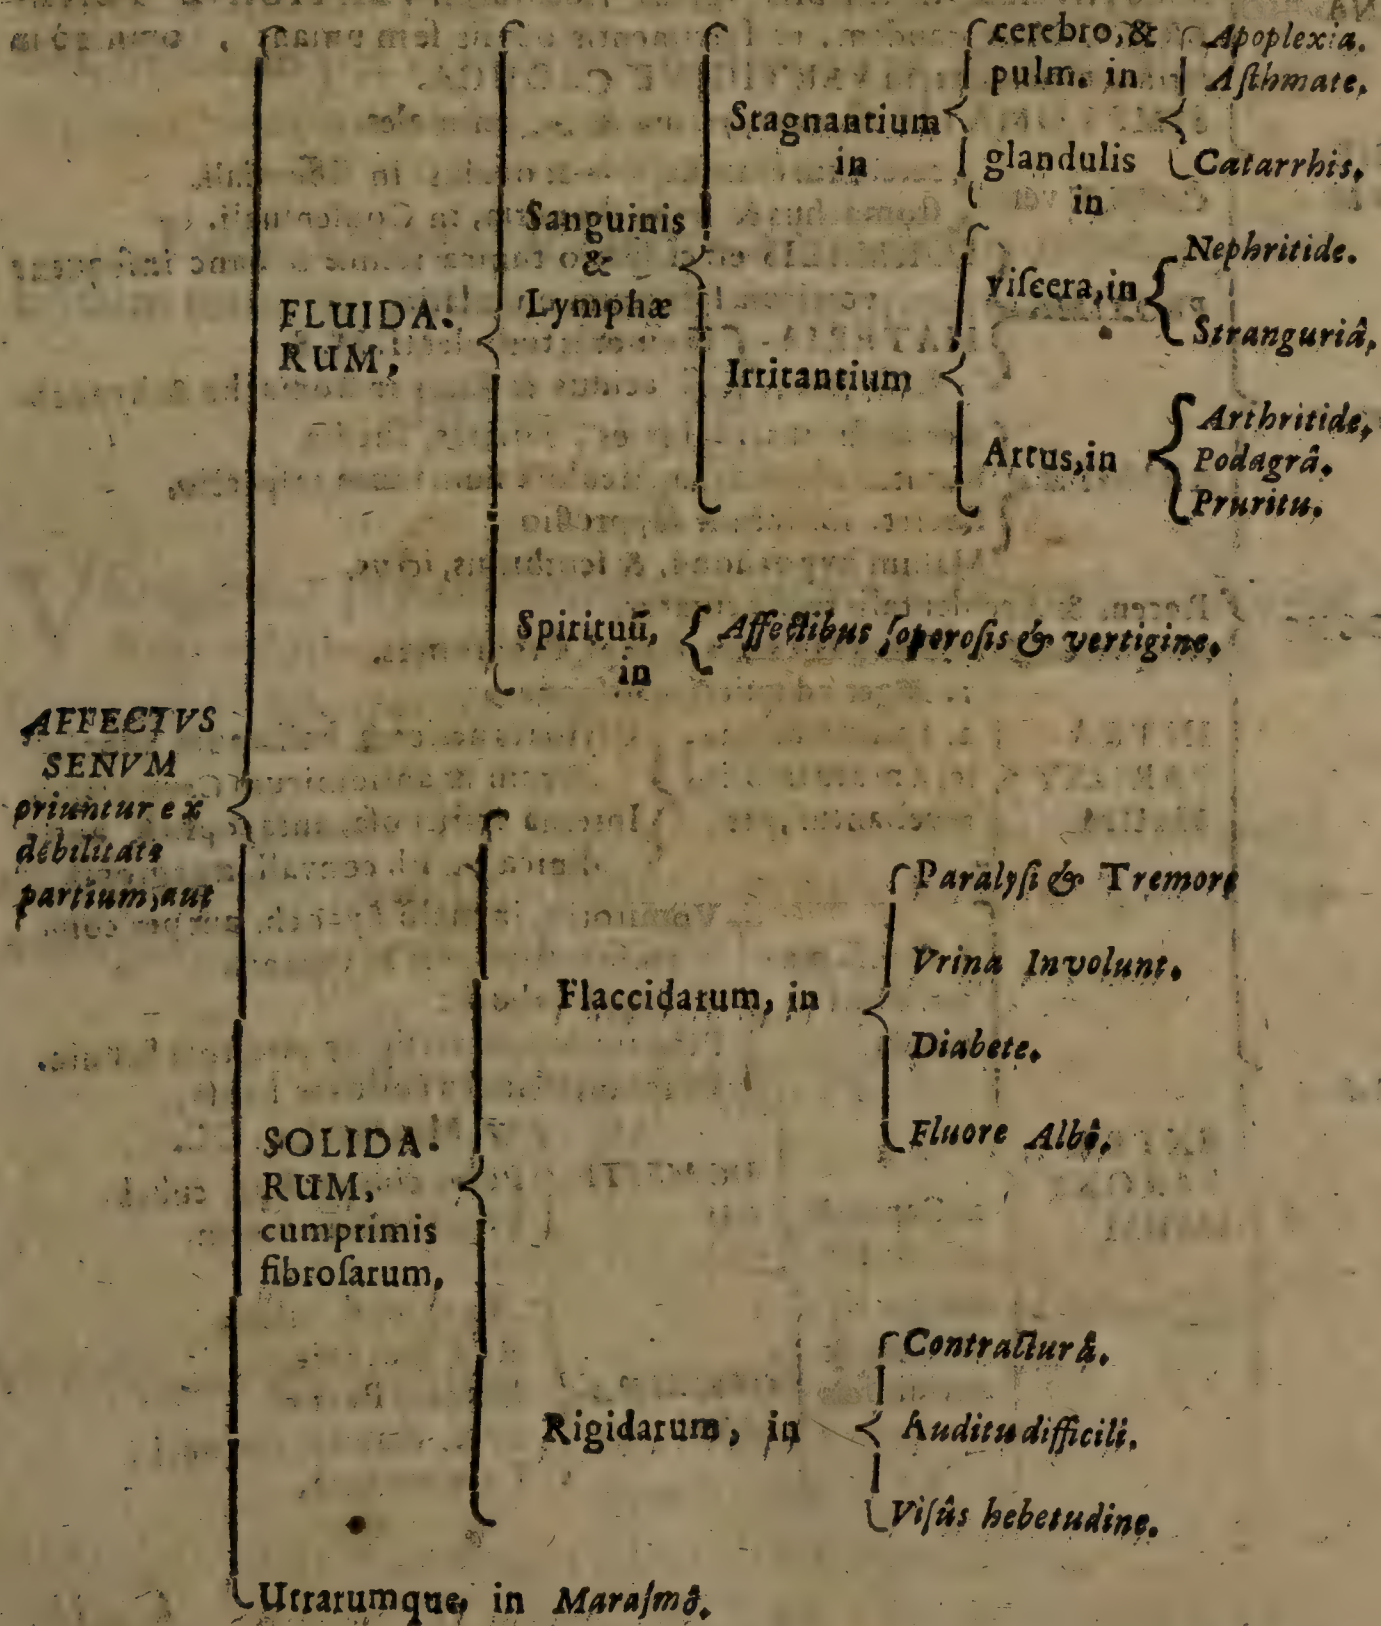 AFFECTVS
SENVM
oriuntur ex
debilitate
partium, aut
FLUIDA-
RUM,
Sanguinis
&
Lymphæ
Stagnantium
in
cerebro, &
pulm. in
Apoplexia.
Aſthmate,
glandulis
in
Catarrhis,
Irritantium
viſcera, in
Nephritide.
Stranguriâ,
Artus, in
Arthritide,
Podagrâ,
Pruritu.
Spirituū,
in
Affectibus ſoporoſis & vertigine,
SOLIDA-
RUM,
cumprimis
fibroſarum,
Flaccidarum, in
Paralyſi & Tremore
Vrina Involunt.
Diabete.
Fluore Albô.
Rigidarum, in
Contracturâ.
Auditu difficili.
Viſûs hebetudine.
Utrarumque, in Maraſmô.